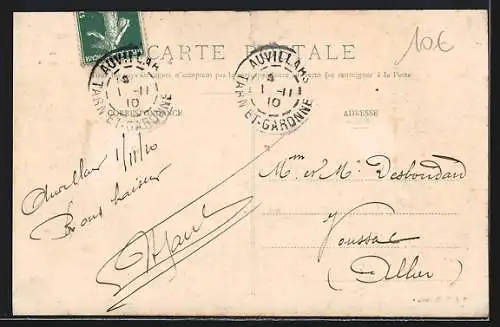 CARTE POSTALE
10€
AUVILLARS
1 -11
10
TARN-ET-GARONNE
AUVILLARS
1 -11
10
TARN-ET-GARONNE
CORRESPONDANCE
ADRESSE
Auvillar 1/11/10
Bons baisers
Mme et Mr Desboudard
Voussac
(Allier)